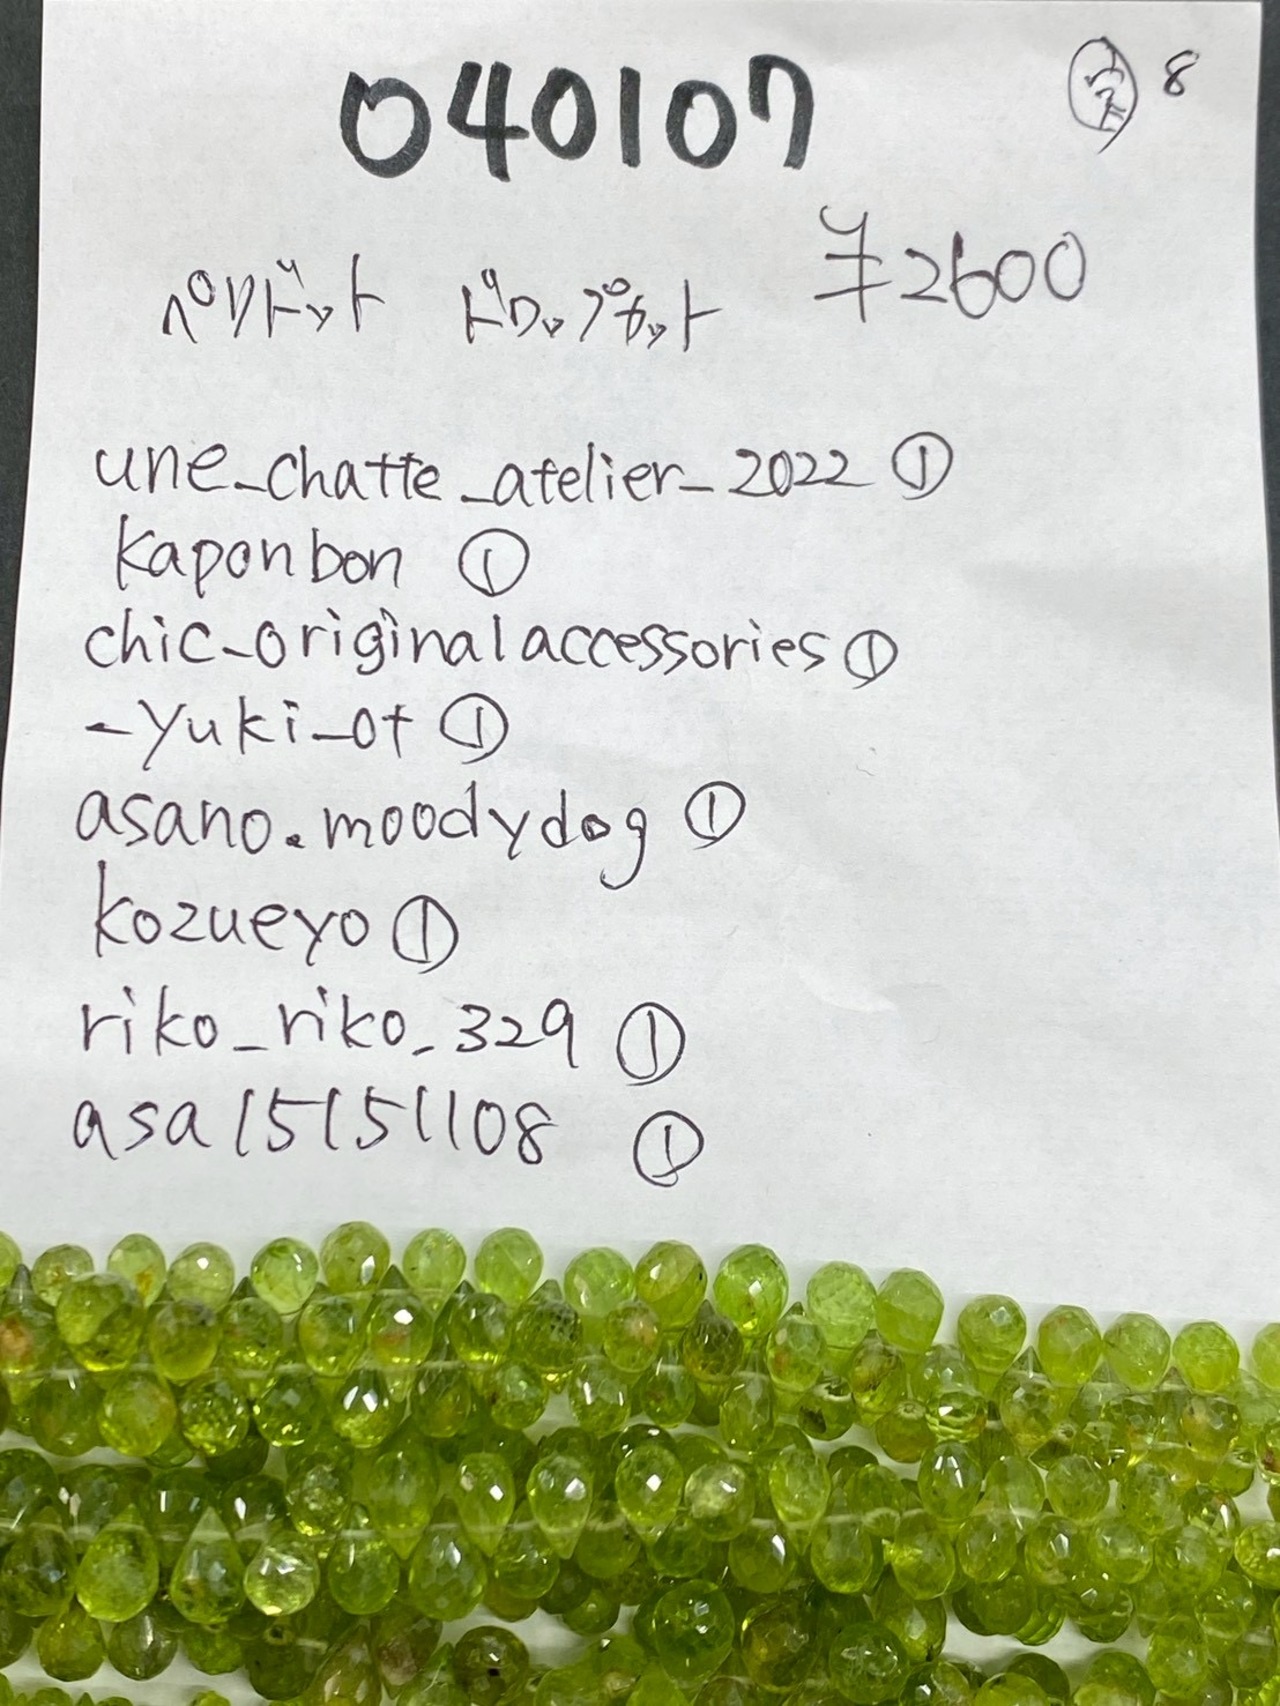 040107
8
ペリドット ドロップカット ¥2600
une_chatte_atelier_2022 ①
kaponbon ①
chic_originalaccessories ①
_yuki_ot ①
asano.moodydog ①
kozueyo ①
riko_riko_329 ①
asa15151108 ①